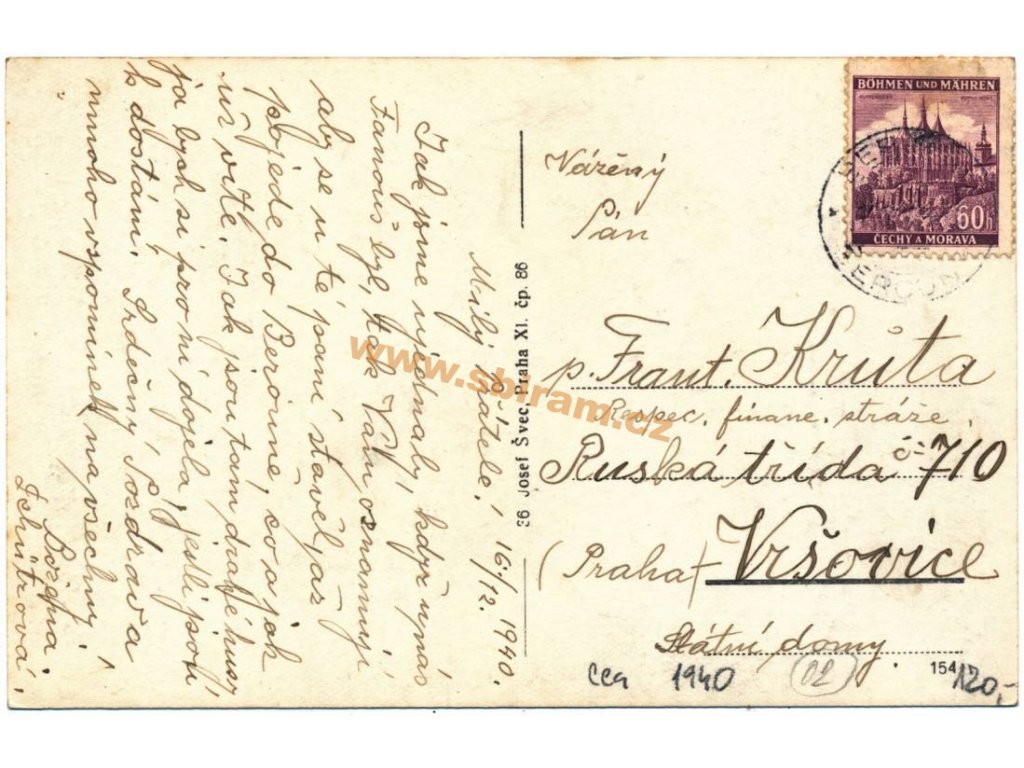 Milý přátelé! 16/12. 1940.
Jak jsme ujednaly, když u nás
Fanouš byl, tak Vám oznamuji
aby se u té paní stavěl, až
pojede do Berouna, co a jak
už ví Ke. Jak jsou tam drahé husy,
ja bych si pro ní dojela, jestli jsou
k dostání. Srdečný Pozdrav a
mnoho vzpomínek na všechny
Božena
Schützová.
36 Josef Švec, Praha XI. čp. 86
BÖHMEN UND MÄHREN
60h
ČECHY A MORAVA
BEROUN
Vážený
Pán
p. Frant. Kruta
Respec. financ. stráže
Ruská třída č= 710
(Praha) Vršovice
Státní domy.
154
cca 1940 (02) 120,-
www.sbiram.cz